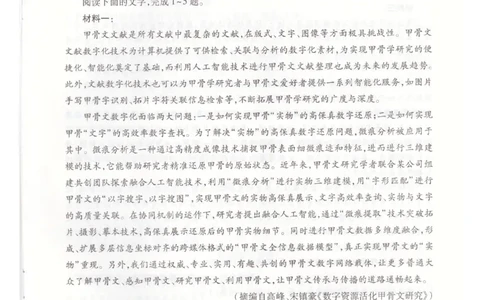 阅读下面的文字,完成1-5题。
材料一:
甲骨文文献是所有文献中最复杂的文献,在版式、文字、图像等方面极具挑战性。甲骨文
文献数字化技术为计算机提供了可供检索、关联与分析的数字化素材,为实现甲骨学研究的便
捷化、智能化奠定了基础,而利用人工智能技术进行甲骨文文献整理也成为未来的发展趋势。
此外,文献数字化技术也可以为甲骨学研究者与甲骨文爱好者提供一系列智能化服务,如图片
手写甲骨字识别、拓片字符关联信息检索等,不断拓展甲骨学研究的广度与深度。
甲骨文数字化面临两大问题:一是如何实现甲骨“实物”的高保真数字还原;二是如何实现
甲骨“文字”的高效率数字查找。为了解决“实物”的高保真数字还原问题,微痕分析被应用于
其中。微痕分析是一种通过高精度成像技术捕捉甲骨表面细微痕迹和特征,进而进行三维建
模的技术,它能帮助研究者精准还原甲骨的原始状态。近年来,甲骨文研究学者联合某公司组
建共创团队探索融合人工智能技术,利用“微痕分析”进行实物三维建模,用“字形匹配”进行
甲骨文的“以字搜字、以字搜图”,实现甲骨文的实物高保真展示、文字高效率查询、实物与文字
的高质量关联。在协同机制的运作下,研究者提出融合人工智能,通过“微痕提取”技术突破拓
片、摄影、摹本技术,高保真展示还原后的甲骨实物细节。同时进行甲骨文数据多维度融合,形
成、扩展多层信息坐标对齐的跨媒体格式的“甲骨文全信息数据模型”,真正实现甲骨文的“实
物”重现。另外,我们通过权威、专业、实用、有趣、共创的甲骨文数字网络载体,让更多普通大
众了解甲骨文、感知甲骨文、研究甲骨文、利用甲骨文,让甲骨文传承与传播的道路通畅起来。
(摘编自高峰、宋镇豪《数字资源活化甲骨文研究》)